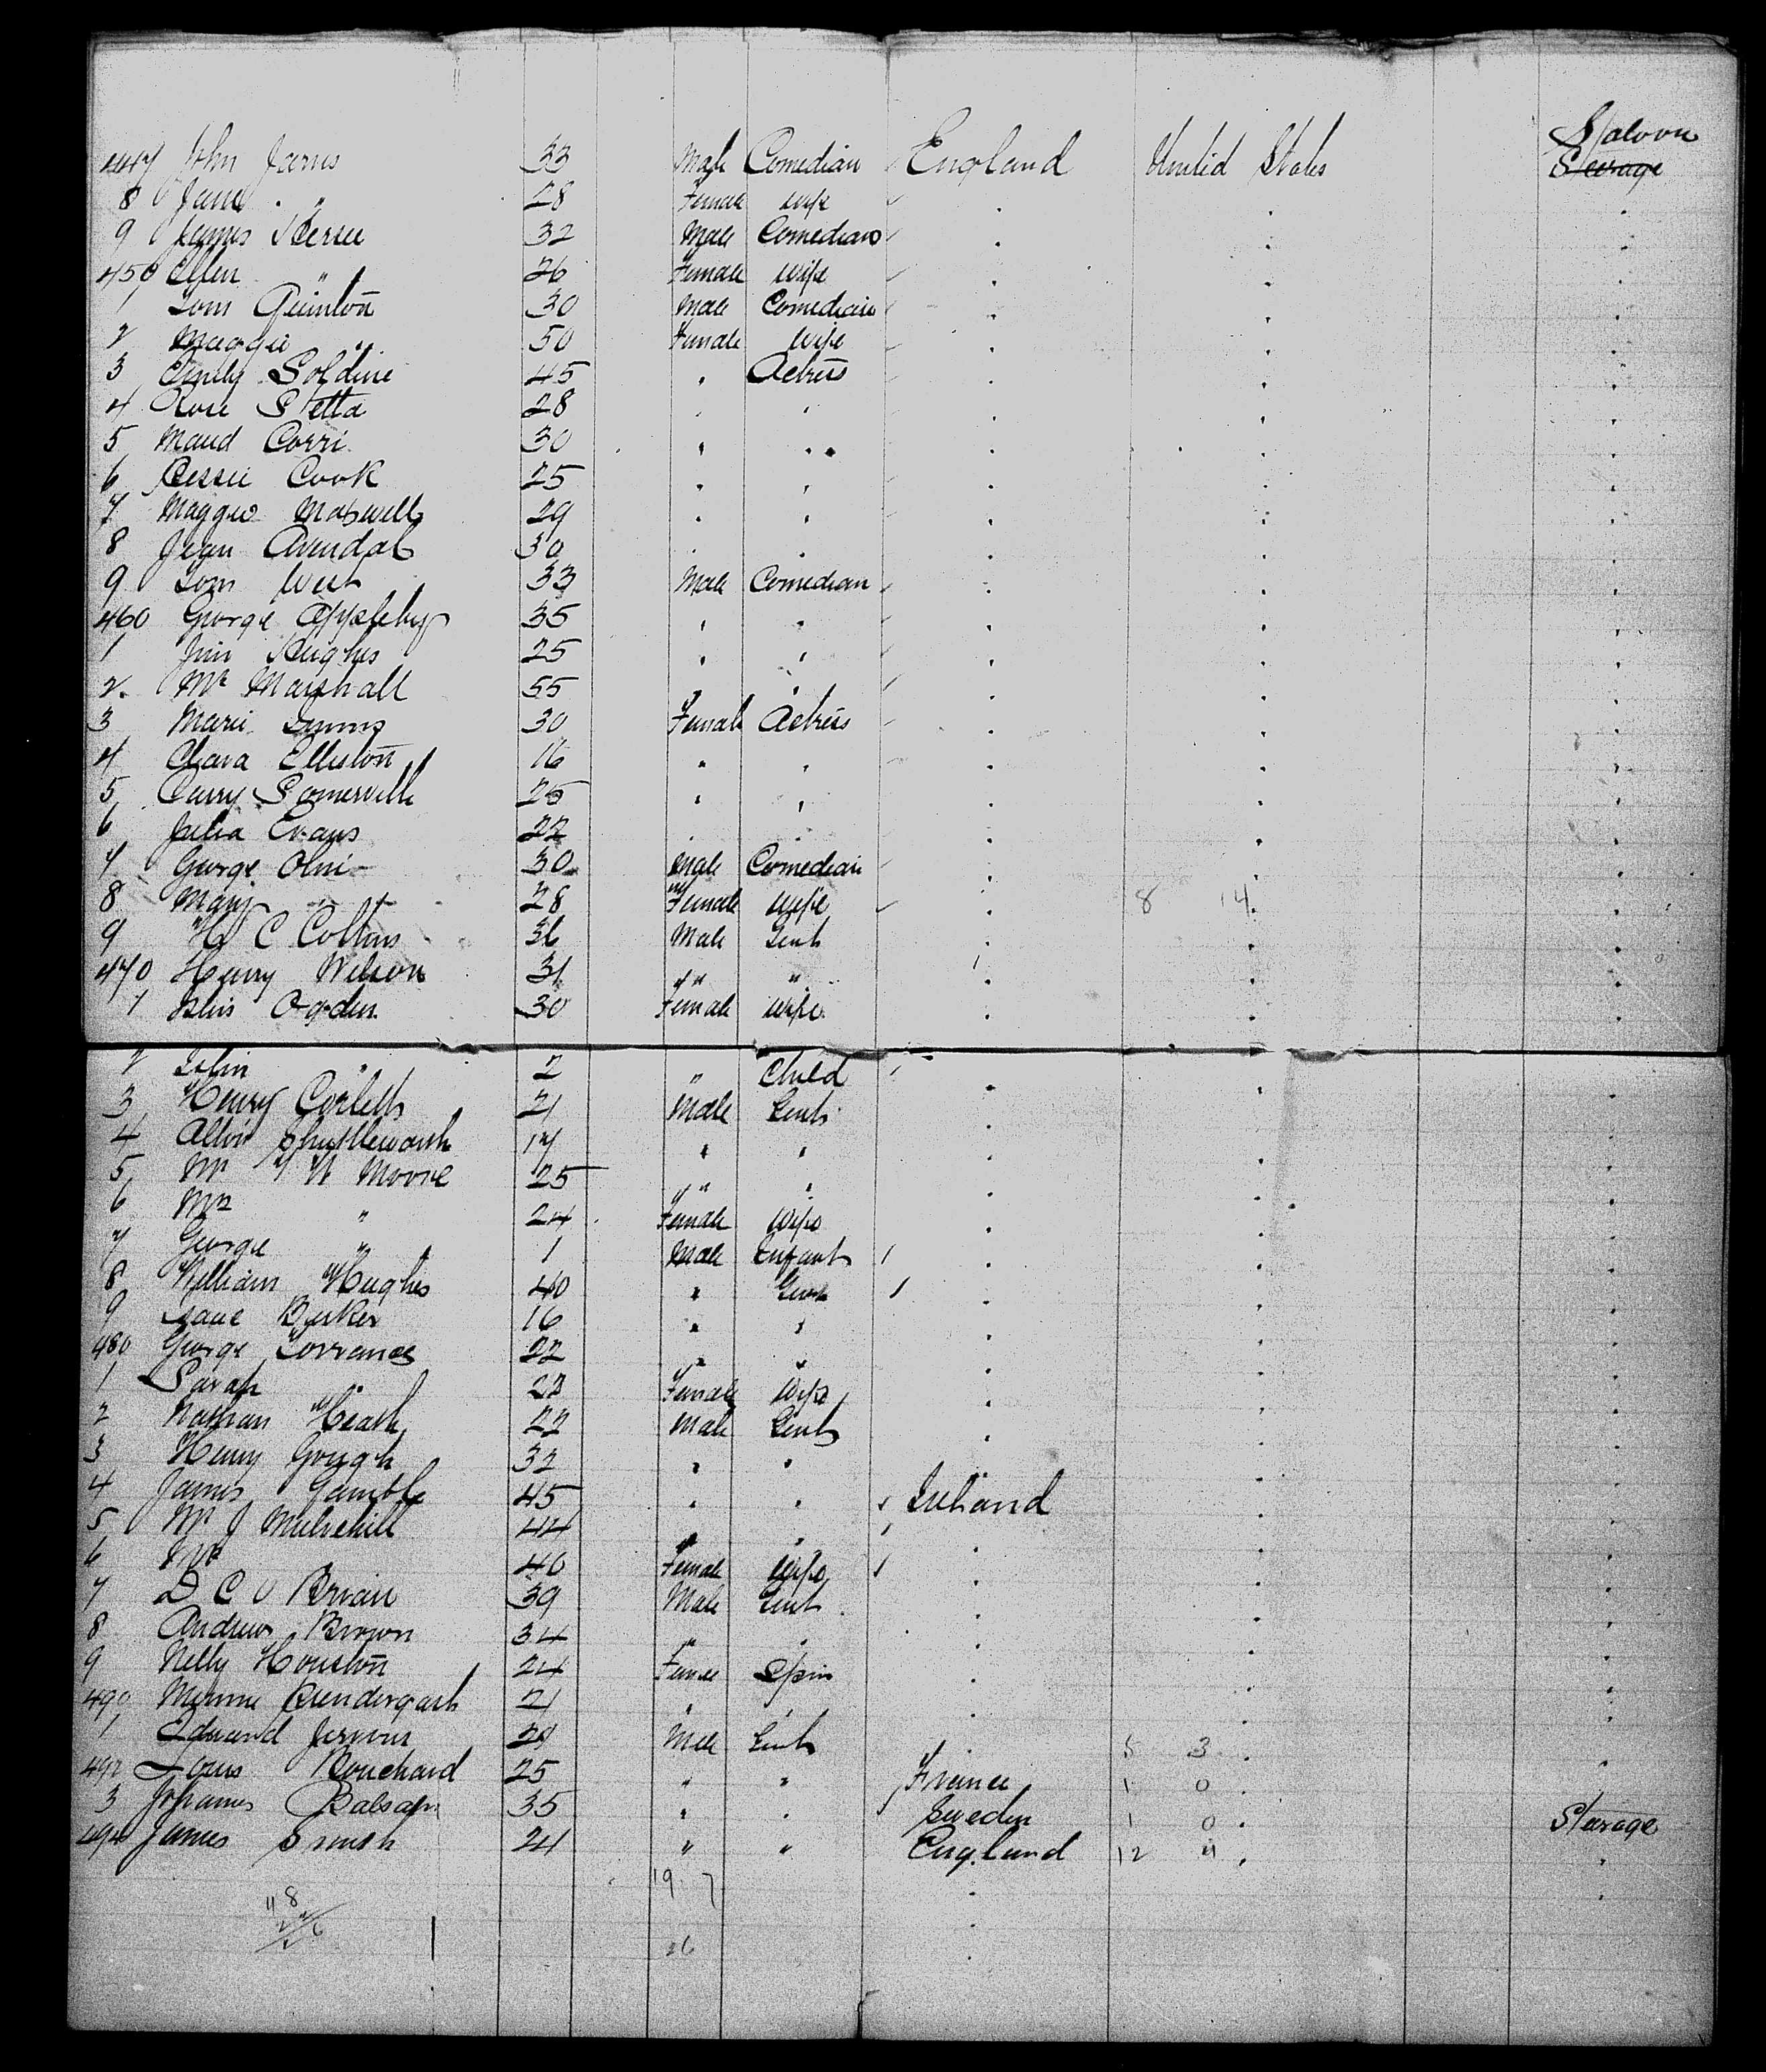 Saloon
447 John Jarvis 33 Male Comedian England United States Steerage
8 Jane " 28 Female wife
9 James Hersee 32 Male Comedian
450 Ellen " 26 Female wife
1 Tom Quinton 30 Male Comedian
2 Maggie " 50 Female Wife
3 Emily Soldine 45 " Actress
4 Rose Stella 28 " "
5 Maud Corri 30 " "
6 Bessie Cook 25 " "
7 Maggie Maxwell 29 " "
8 Jean Arendal 30 " "
9 Tom West 33 Male Comedian
460 George Appleby 35 " "
1 Jim Hughes 25 " "
2. Mr Marshall 55 " "
3 Marie 30 Female Actress
4 Clara Elliston 16 " "
5 Carry Somerville 25 " "
6 Julia Evans 22 " "
7 George Olmi 30 Male Comedian
8 Mary " 28 Female wife 8 14
9 H C Coltons 36 Male Gent
470 Henry Wilson 31 " "
1 Ogden 30 Female wife
2 " 2 " Child
3 Henry Corlett 21 Male Gent
4 Shuttleworth 17 " "
5 Mr Moore 25 " "
6 Mrs " 24 Female Wife
7 George " 1 Male Infant
8 William Hughes 40 " Gent
9 Isaac Barker 16 " "
480 George Torrance 22 " "
1 Sarah " 22 Female Wife
2 Nathan Heath 22 Male Gent
3 Henry Gough 32 " "
4 James Gamble 45 " " Ireland
5 Mr J Mulvehill 44 " "
6 Mrs 40 Female Wife
7 D C O Brian 39 Male Gent
8 Andrew Brown 34 " "
9 Nelly Houston 24 Female Spin
490 Minnie Prendergast 21 " "
1 Edmund 28 Male Gent 5 3
492 Louis Bouchard 25 " " France 1 0
3 Johannes 35 " " Sweden 1 0 Steerage
494 James Smith 24 " " England 12 4
19 7
11 8
26